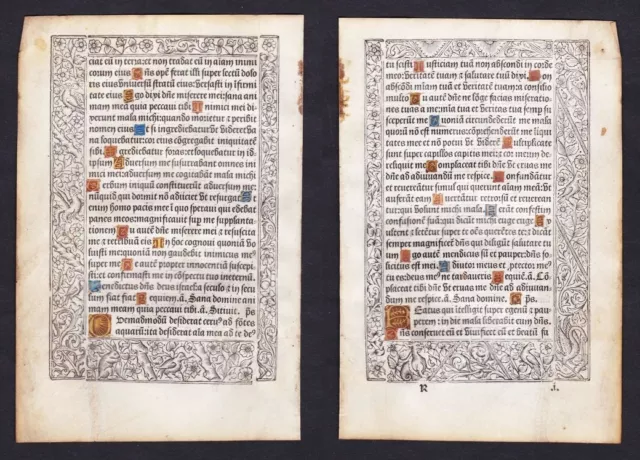 ciat eū in terra: et non tradat eū in aīam inimi
corum eius Dn̄s opē ferat illi super lectū dolo
ris eius: vniuersū stratū eius versasti in īfirmi
tate eius Ego dixi dn̄e miserere mei: sana ani
mam meā quia peccaui tibi Inimici mei dix
erunt mala michi: quando morietur z peribit
nomen eius Et si ingrediebatur vt videret va
na loquebatur: cor eius cōgregauit iniquitatē
sibi Egrediebatur foras: et loquebatur in id
ipsum Aduersum me susurrabant omnes ini
mici mei: aduersum me cogitabāt mala michi
Verbum iniquū constituerūt aduersum me:
nunquid qui dormit nō adiiciet vt resurgat Et
enim homo pacis mee in quo speraui qui edebat
panes meos: magnificauit sup me supplantati
onem Tu autē dn̄e miserere mei z resuscita
me z retribuā eis In hoc cognoui quoniā vo
luisti me: quoniā non gaudebit inimicus meus
super me Me autē propter innocentiā suscepi
sti: et confirmasti me in cōspectu tuo ineternū.
Benedictus dn̄s deus israel a seculo z in secu
lum fiat fiat Requiem. ā. Sana domine ani
mam meam quia peccaui tibi. ā. Sitiuit. p̄s.
Quemadmodū desiderat ceru⁹ ad fōtes
aquarū: ita desiderat aīa mea ad te de⁹
tu scisti Iusticiam tuā non abscondi in corde
meo: veritatē tuam z salutare tuū dixi. Non
abscōdi mīam tuam z veritatē tuam a consilio
multo Tu autē dn̄e ne lōge facias miseratio
nes tuas a me: mīa tua et veritas tua semp su
sceperunt me Quoniā circundederūt me mala
quorū nō est numerus: cōprehenderūt me iniqui
tates mee et nō potui vt viderē Multiplicate
sunt super capillos capitis mei: et cor meum de
reliquit me Complaceat tibi dn̄e vt eruas me:
dn̄e ad adiuuandū me respice. Confundātur
et reuereātur simul qui querunt aīam meā: vt
auferāt eam Auertātur retrorsū et reue
rātur: qui volunt michi mala Ferāt confestim
confusionē suā: qui dicūt michi euge euge Ex
ultent z letētur super te oēs querētes te: z dicāt
semper magnificet dn̄s qui diligūt salutare tu
um Ego autē mendicus sū et pauper: dn̄s so
licitus est mei Adiutor meus et protector me⁹
tu es: deus meus ne tardaueris Requiē. ā. Cō
placeat tibi dn̄e vt eripias me dn̄e ad adiuuan
dum me respice. ā. Sana domine. p̄s.
Beatus qui ītelligit super egenū z pau
perem: in die mala liberabit eum dn̄s.
Dn̄s conseruet eū et viuificet eū et beatū fa
R i.